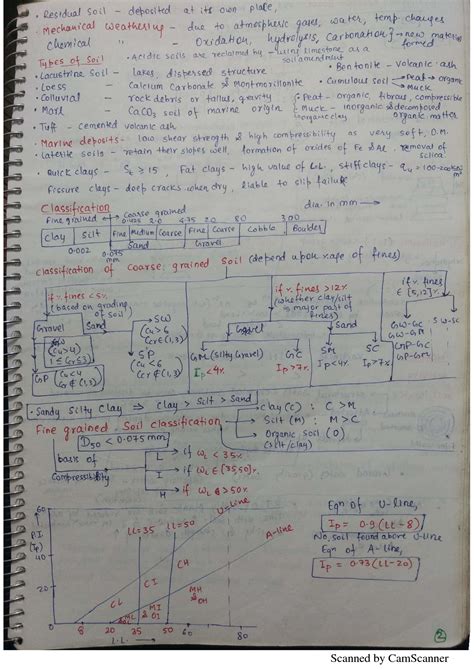 • Residual Soil - deposited at its own place,
• Mechanical Weathering - due to atmospheric gases, water, temp. changes
chemical " - Oxidation, hydrolysis, Carbonation → new material formed
Types of Soil • Acidic soils are reclaimed by - using limestone, as a soil amendment
• Bentonite - volcanic ash
• Lacustrine Soil - lakes, dispersed structure
• Cumulous soil - Peat → organic
Muck
• Loess - Calcium Carbonate & Montmorillonite
• Colluvial - rock debris or tallus, gravity
Peat - organic, fibrous, compressible
• Marl - CaCO3 soil of marine origin
Muck - inorganic & decomposed organic matter
• Tuff - cemented volcanic ash
• Marine deposits - low shear strength & high compressibility as very soft, O.M.
• Laterite soils - retain their slopes well, formation of oxides of Fe & Al, removal of silica
Quick clays - St ≥ 15, Fat clays - high value of LL, Stiff clays -
Fissure clays - deep cracks when dry, liable to slip failure
Classification dia. in mm →
Fine grained Coarse grained
0.425 2.0 4.75 20 80 300
Clay Silt Fine Medium Coarse Fine Coarse Cobble Boulder
Sand Gravel
0.002 0.075 mm
Classification of Coarse grained Soil (depend upon %age of fines)
if % fines < 5%
(based on grading of soil)
if % fines > 12%
(whether clay/silt is major part of fines)
if % fines ∈ [5,12]%
Gravel Sand
Gravel Sand
GW-GC
GW-GM
GP-GC
GP-GM
GW
Cu > 4
1 ≤ Cc ≤ 3
SW
Cu > 6
Cc ∈ (1,3)
GP Cu < 4
Cc ∉ (1,3)
SP
Cu < 6
Cc ∉ (1,3)
GM (Silty Gravel) Ip < 4%
GC Ip > 7%
SM Ip < 4%
SC Ip > 7%
• Sandy Silty Clay ⇒ Clay > Silt > Sand
Fine grained Soil classification
Clay (C) : C > M
Silt (M) : M > C
Organic Soil (O)
(silt/clay)
D50 < 0.075 mm
basis of Compressibility
L if WL < 35%
I if WL ∈ (35,50)%
H if WL > 50%
P.I. (Ip)
60
40
20
LL=35 LL=50 U-line A-line
CL CI CH
ML MI & OI MH & OH
20 35 50 60 80
L.L. →
Eqn of U-line,
Ip = 0.9 (LL-8)
No soil found above U-line
Eqn of A-line,
Ip = 0.73 (LL-20)
2
Scanned by CamScanner